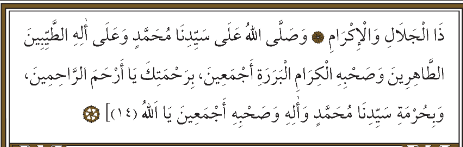 ذَا الْجَلَالِ وَالْإِكْرَامِ ۞ وَصَلَّى اللهُ عَلَى سَيِّدِنَا مُحَمَّدٍ وَعَلَى أٰلِهِ الطَّيِّبِينَ
الطَّاهِرِينَ وَصَحْبِهِ الْكِرَامِ الْبَرَرَةِ أَجْمَعِينَ، بِرَحْمَتِكَ يَا أَرْحَمَ الرَّاحِمِينَ،
وَبِحُرْمَةِ سَيِّدِنَا مُحَمَّدٍ وَأٰلِهِ وَصَحْبِهِ أَجْمَعِينَ يَا اَللهُ (١٤)] ۞